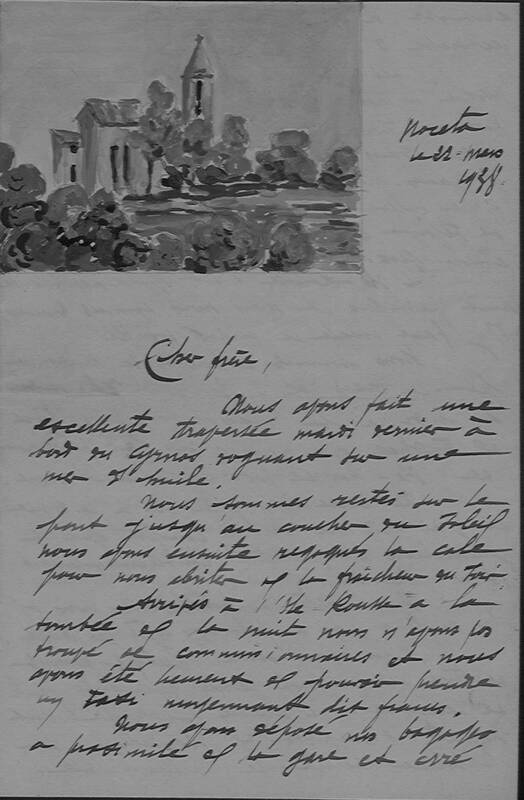 Noceta
le 22 - mars
1938.
Cher frère,
Nous avons fait une
excellente traversée mardi dernier à
bord du Cyrnos voguant sur une
mer d'huile.
Nous sommes restés sur le
pont jusqu'au coucher du Soleil
nous avons ensuite regagné la cale
pour nous abriter de la fraîcheur du soir.
Arrivés à l'Ile Rousse a la
tombée de la nuit nous n'avons pas
trouvé de commissionnaires et nous
avons été heureux de pouvoir prendre
un taxi moyennant dix francs.
Nous avons déposé nos bagages
a proximité de la gare et erré